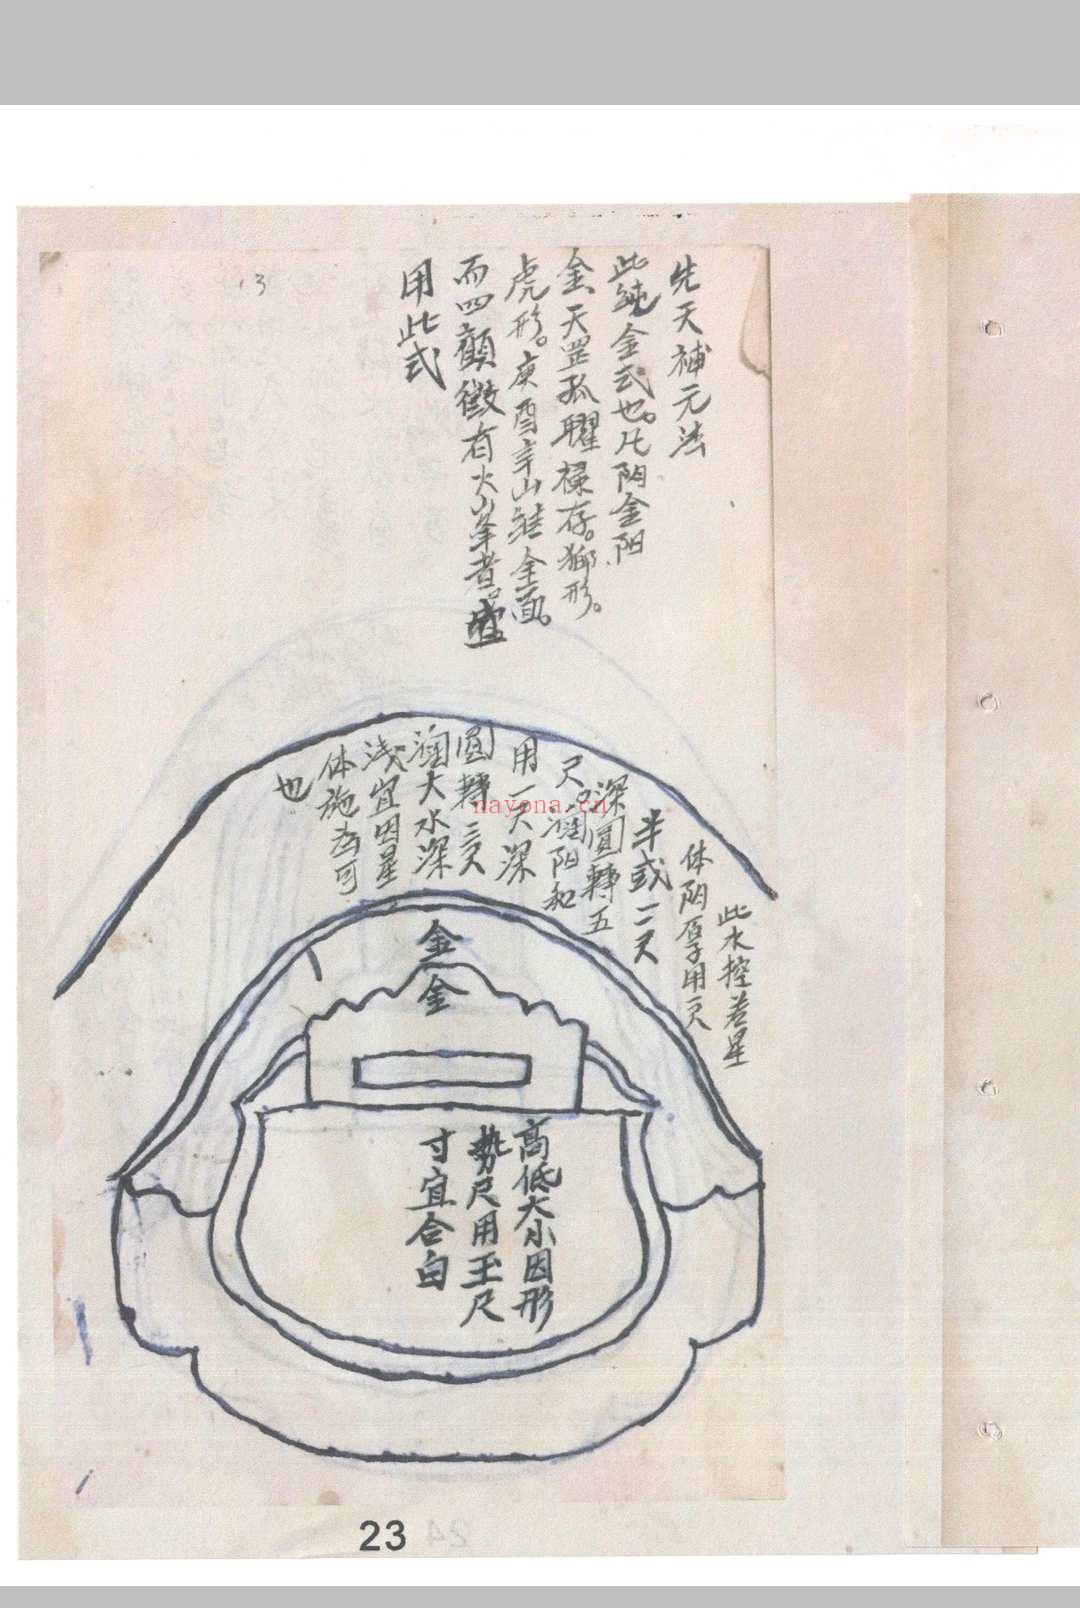 先天補元法
此純金式也。凡阴金阳
金天罡孤曜祿存。獅形。
虎形。庚酉辛山龍全面。
而四顧徵有火山峯者。宜
用此式
13
此水控若星
体阴厚用一尺
半或二尺
深圓轉五
尺。濶阳和
用一尺深
圓轉三尺
濶大水深
浅宜因星
体施為可
也
nayona.cn
金
金
高低大小因形
勢尺用玉尺
寸宜合白
23
24